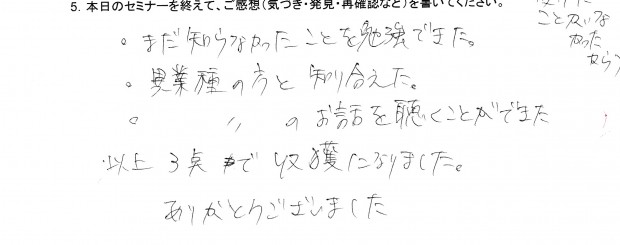 5. 本日のセミナーを終えて、ご感想（気づき・発見・再確認など）を書いてください。
。まだ知らなかったことを勉強できた。
。異業種の方と知り合えた。
。　〃　のお話を聴くことができた
以上 3点で収獲になりました。
ありがとうございました
こと
なかった
から